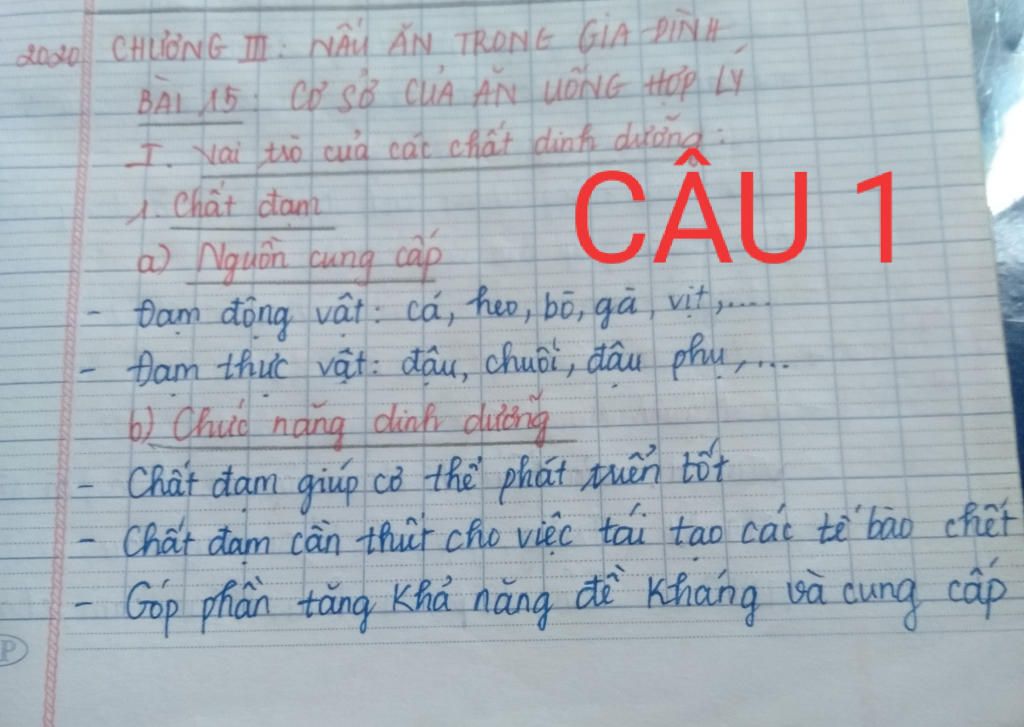 2020 CHƯƠNG III: NẤU ĂN TRONG GIA ĐÌNH
BÀI 15: CƠ SỞ CỦA ĂN UỐNG HỢP LÝ
I. Vai trò của các chất dinh dưỡng:
CÂU 1
1. Chất đạm
a) Nguồn cung cấp
- Đạm động vật: cá, heo, bò, gà, vịt,.....
- Đạm thực vật: đậu, chuối, đậu phụ,...
b) Chức năng dinh dưỡng
- Chất đạm giúp cơ thể phát triển tốt
- Chất đạm cần thiết cho việc tái tạo các tế bào chết
- Góp phần tăng khả năng đề kháng và cung cấp
P